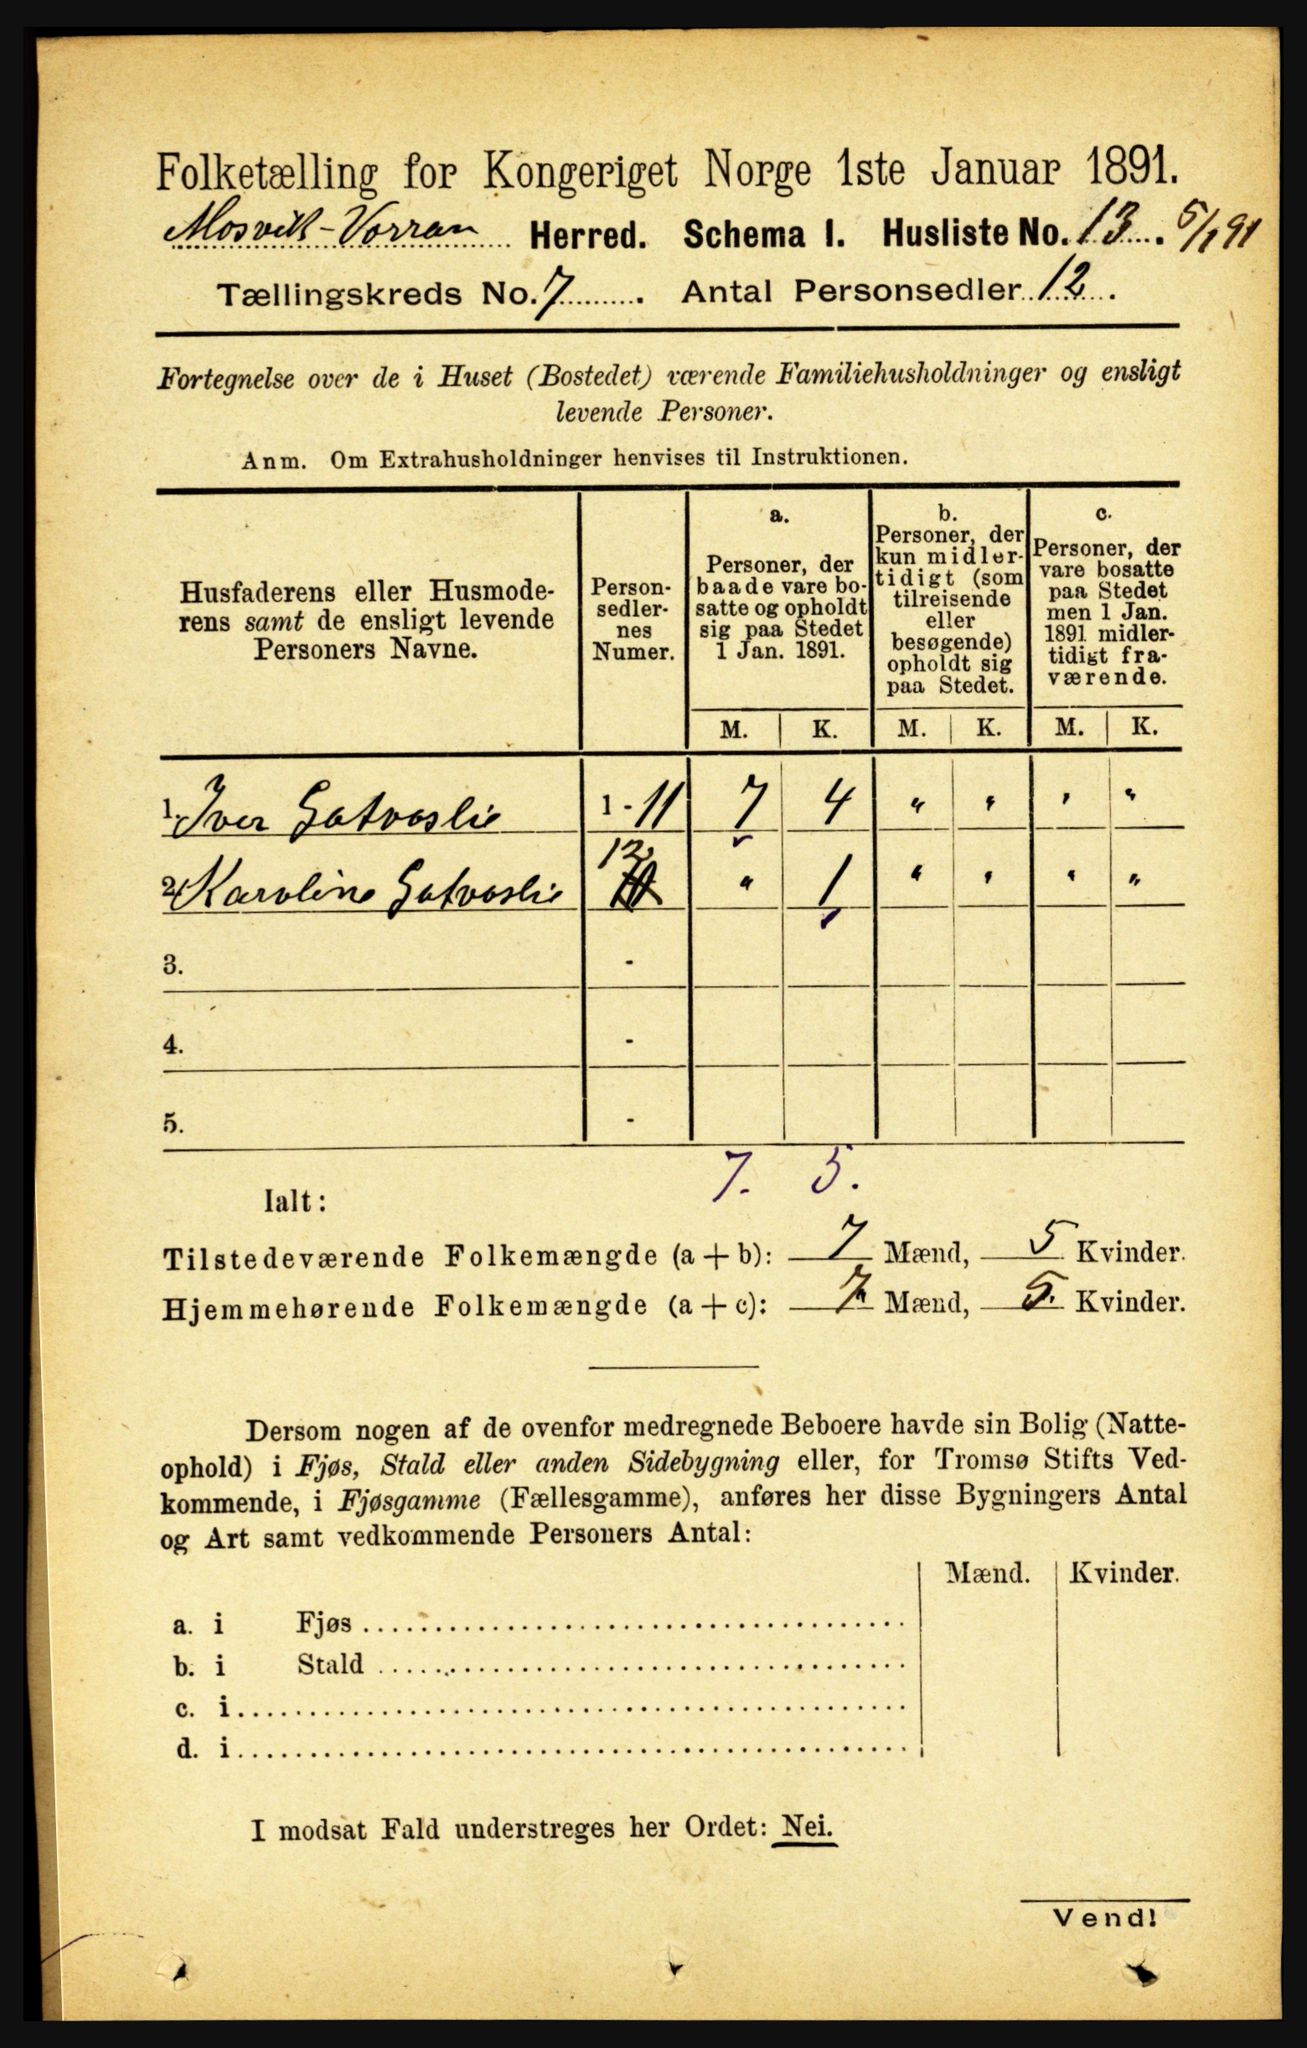 Folketælling for Kongeriget Norge 1ste Januar 1891.
Mosvik-Vorran Herred. Schema I. Husliste No. 13. 5/1 91
Tællingskreds No. 7. Antal Personsedler 12.
Fortegnelse over de i Huset (Bostedet) værende Familiehusholdninger og ensligt
levende Personer.
Anm. Om Extrahusholdninger henvises til Instruktionen.
Husfaderens eller Husmode-
rens samt de ensligt levende
Personers Navne.
Person-
sedler-
nes
Numer.
a.
Personer, der
baade vare bo-
satte og opholdt
sig paa Stedet
1 Jan. 1891.
b.
Personer, der
kun midler-
tidigt (som
tilreisende
eller
besøgende)
opholdt sig
paa Stedet.
c.
Personer, der
vare bosatte
paa Stedet
men 1 Jan.
1891 midler-
tidigt fra-
værende.
M. K. M. K. M. K.
1. Iver Gatvoslie 1-11 7 4 " " " "
2. Karoline Gatvoslie 12 " 1 " " " "
3. -
4. -
5. -
7. 5.
Ialt:
Tilstedeværende Folkemængde (a + b): 7 Mænd, 5 Kvinder.
Hjemmehørende Folkemængde (a + c): 7 Mænd, 5. Kvinder.
Dersom nogen af de ovenfor medregnede Beboere havde sin Bolig (Natte-
ophold) i Fjøs, Stald eller anden Sidebygning eller, for Tromsø Stifts Ved-
kommende, i Fjøsgamme (Fællesgamme), anføres her disse Bygningers Antal
og Art samt vedkommende Personers Antal:
Mænd. Kvinder.
a. i Fjøs
b. i Stald
c. i
d. i
I modsat Fald understreges her Ordet: Nei.
Vend!